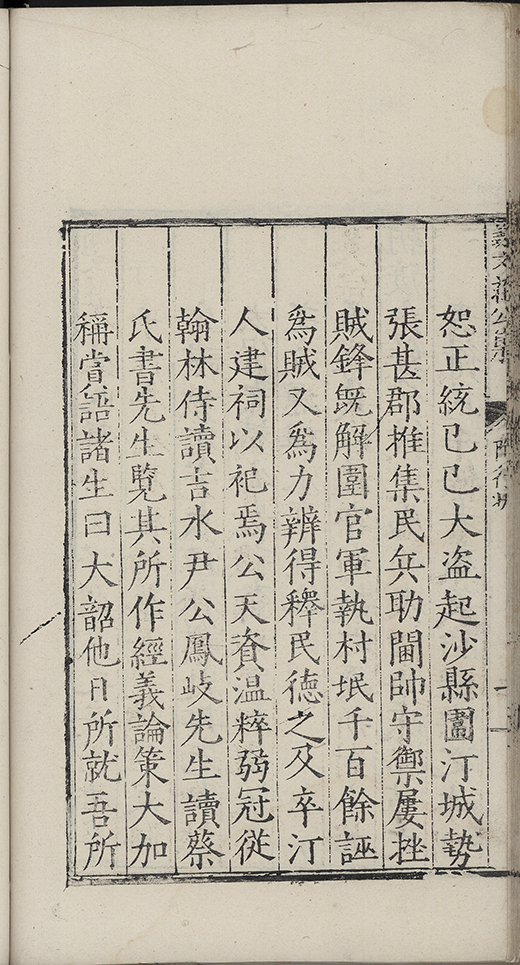 恕正統己巳大盗起沙縣圍汀城勢
張甚郡推集民兵助閫帥守禦屢挫
賊鋒既解圍官軍執村氓千百餘誣
為賊又為力辨得釋民德之及卒汀
人建祠以祀焉公天資温粹弱冠從
翰林侍讀吉水尹公鳳岐先生讀蔡
氏書先生覽其所作經義論策大加
稱賞語諸生曰大韶他日所就吾所